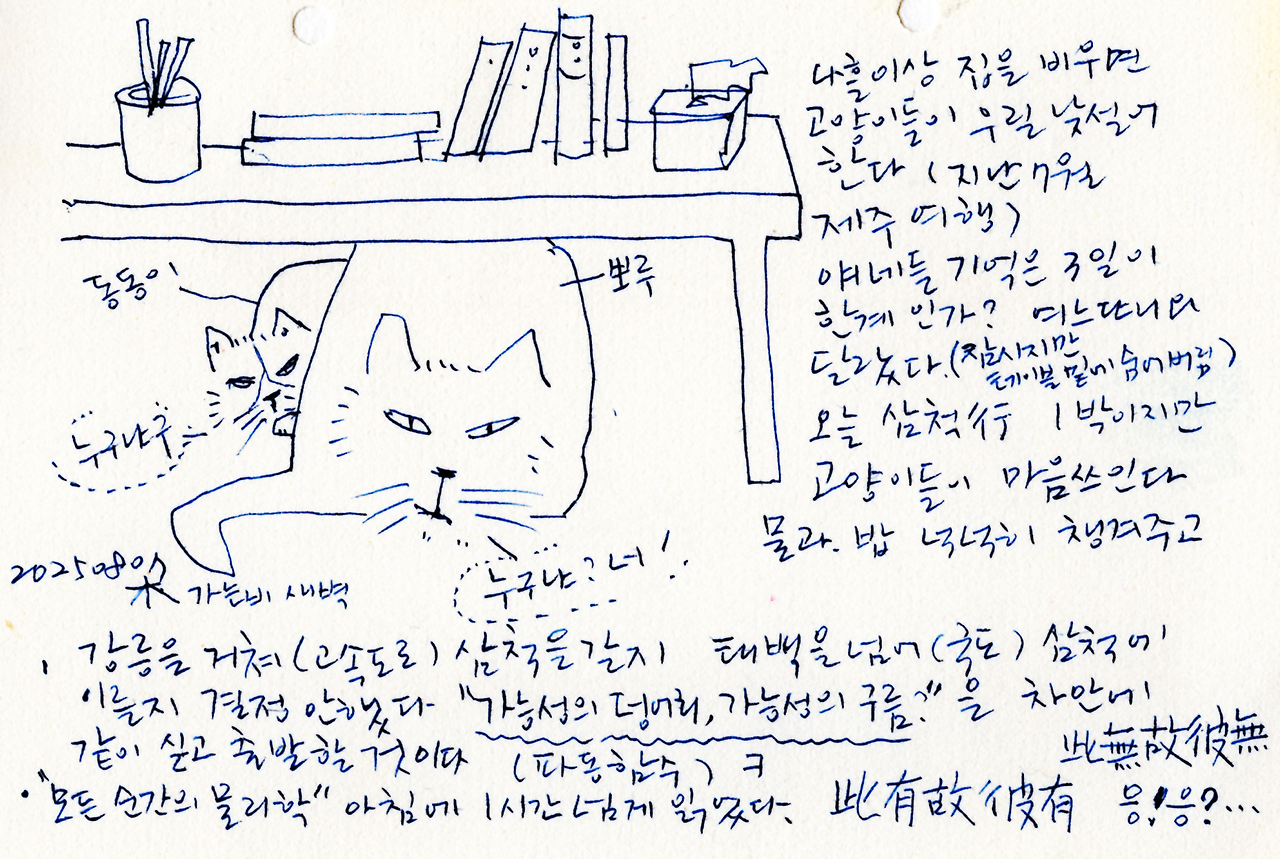 나흘이상 집을 비우면
고양이들이 우릴 낯설어
한다 (지난 7월
제주 여행)
얘네들 기억은 3일이
한계인가? 여느때와
달랐다.(잠시지만
테이블 밑에 숨어버림)
오늘 삼척行 1박이지만
고양이들이 마음쓰인다
물과. 밥 넉넉히 챙겨주고
동동이
뽀루
누구냐구
누구냐? 너!
20250807
木 가는비 새벽
강릉을 거쳐(고속도로) 삼척을갈지 태백을넘어(국도) 삼척에
이를지 결정 안했다 "가능성의 덩어리, 가능성의 구름?"을 차안에
같이 싣고 출발할 것이다 (파동함수) ㅋ
此無故彼無
• "모든 순간의 물리학" 아침에 1시간 넘게 읽었다. 此有故彼有 응!응?...